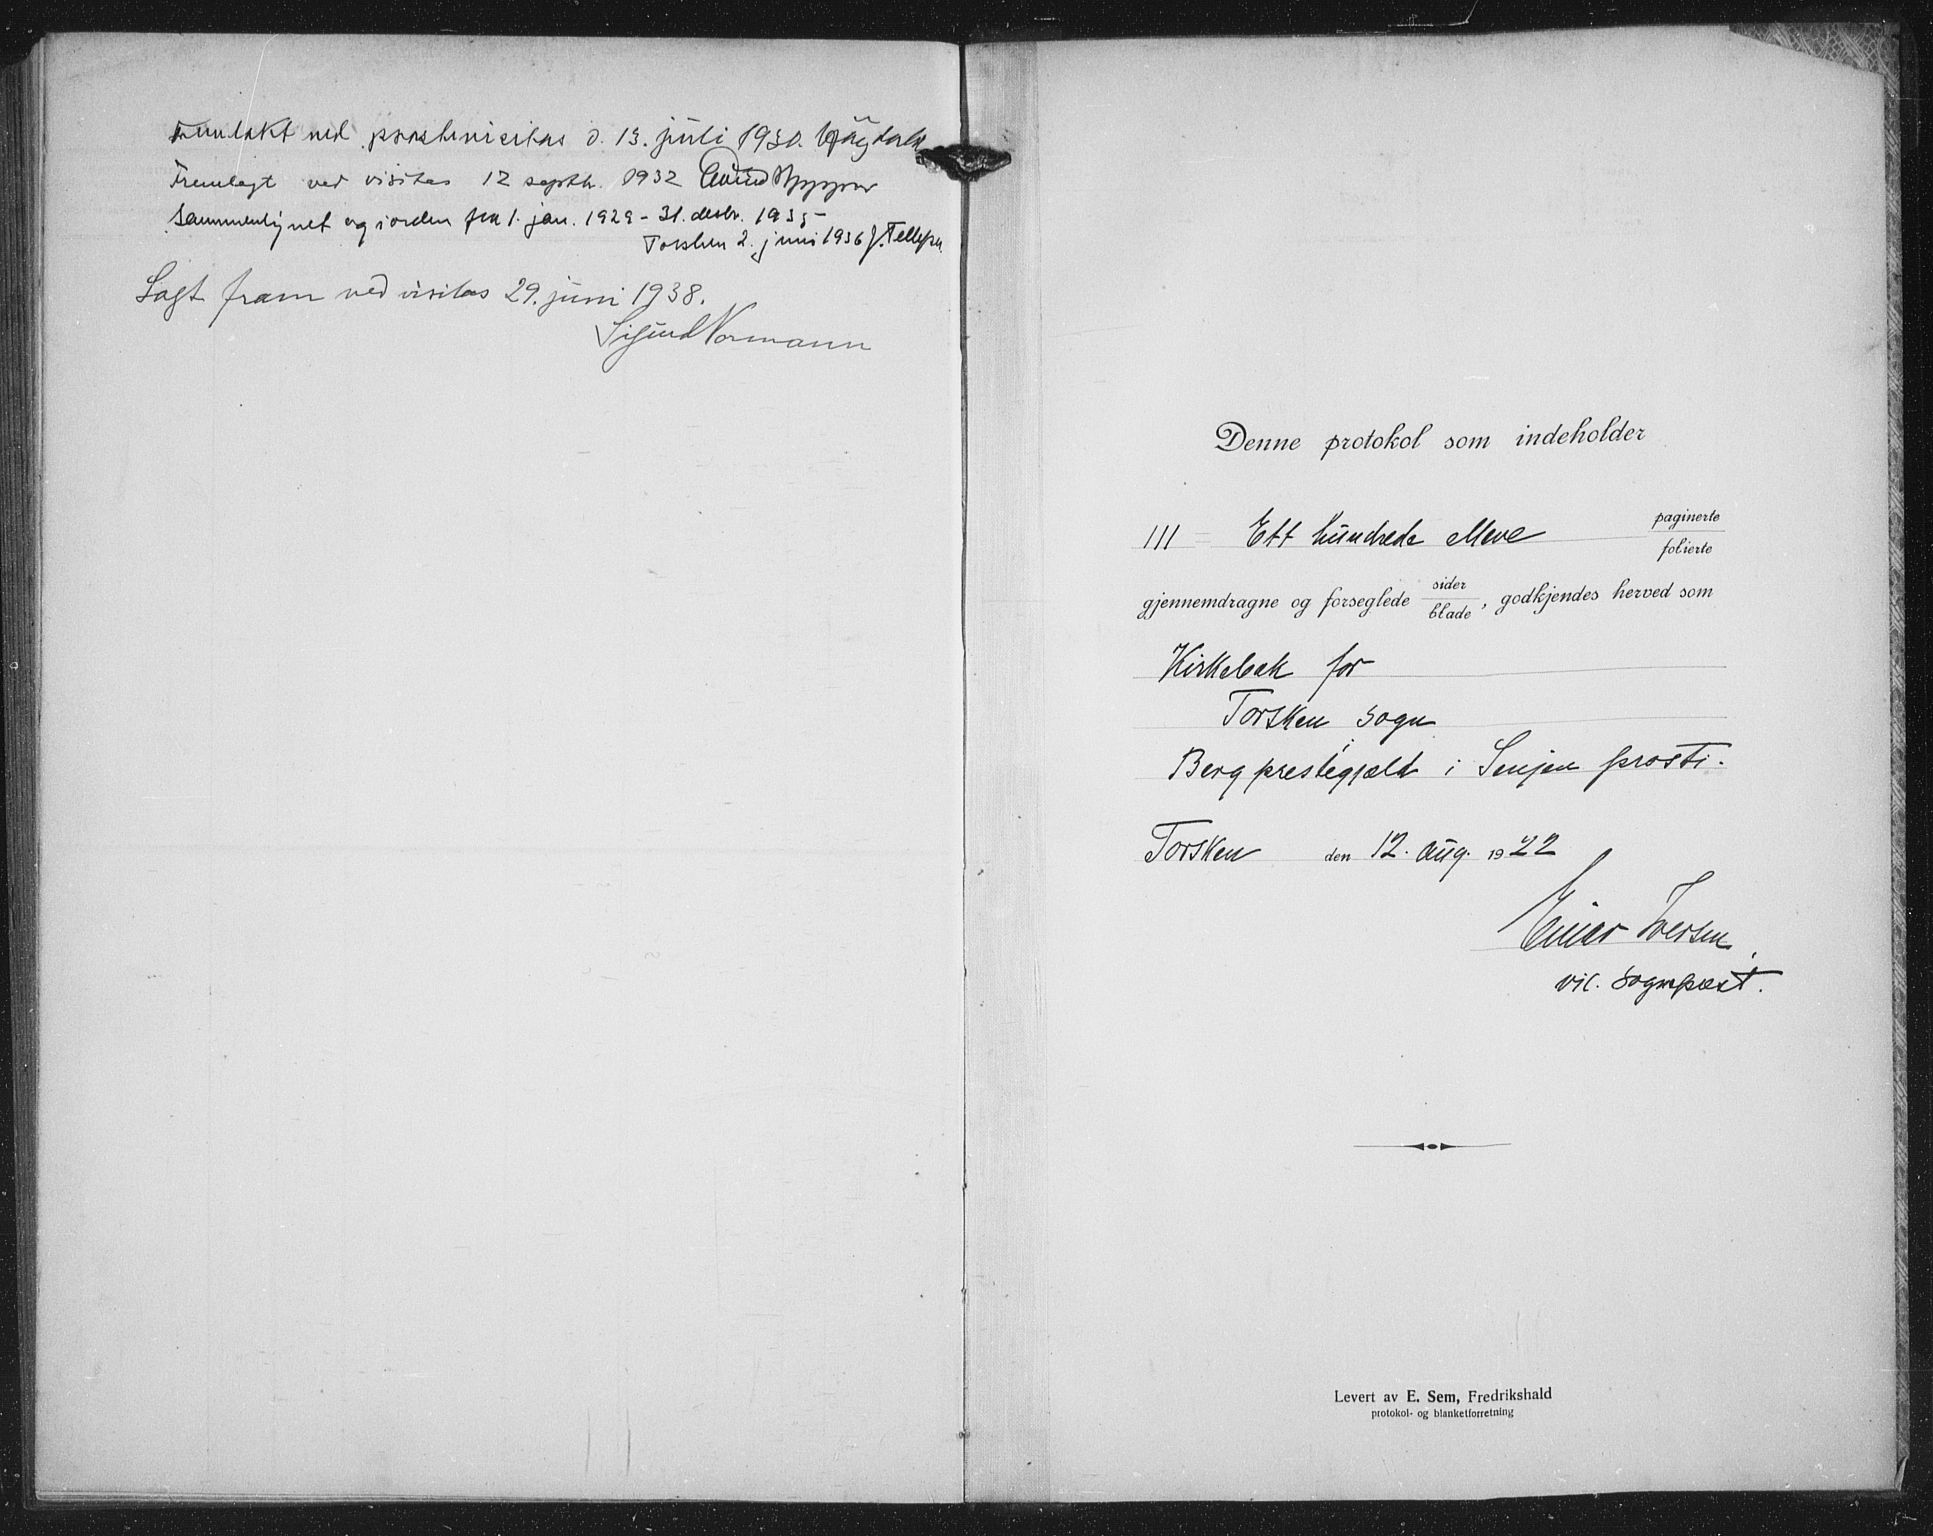 Fremlakt ved prostevisitas d. 13. juli 1930.
Fremlagt ved visitas 12 septbr. 1932 Eivind Berggrav
Sammenlignet og i orden fra 1. jan. 1929 - 31. desbr. 1935
Torsken 2. juni 1936 J. Tellefsen
Lagt fram ved visitas 29. juni 1938.
Sigurd Normann
Denne protokol som indeholder
111 = Ett hundrede elleve paginerte
folierte
gjennemdragne og forseglede sider
blade, godkjendes herved som
Kirkebok for
Torsken sogn
Berg prestegjæld i Senjen prosti.
Torsken den 12. aug. 1922
Einar Iversen
vic. sogneprest.
Levert av E. Sem, Fredrikshald
protokol- og blanketforretning